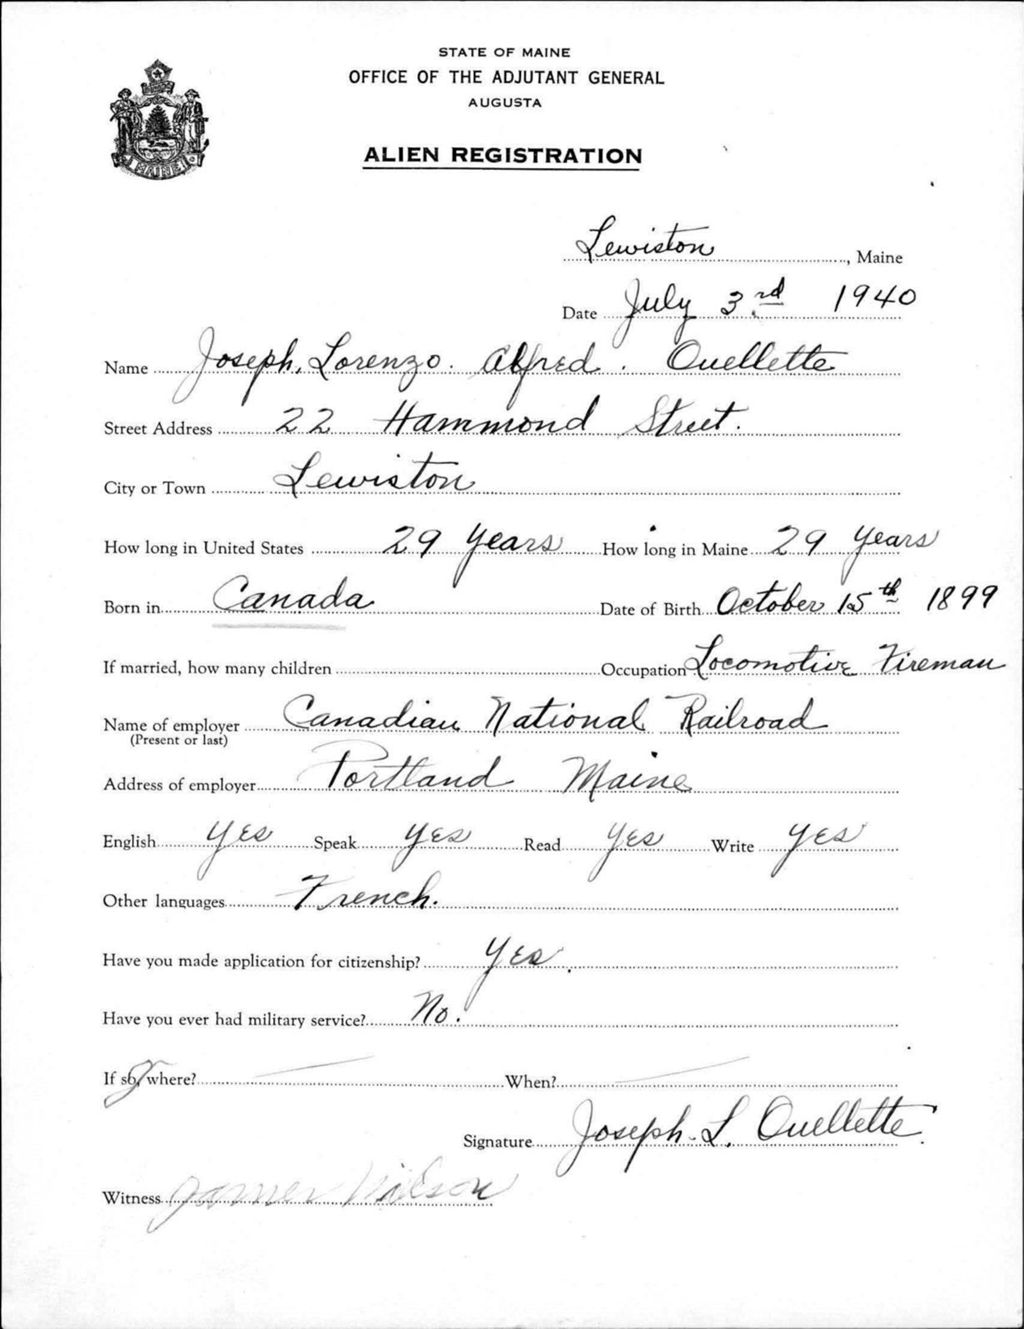 STATE OF MAINE
OFFICE OF THE ADJUTANT GENERAL
AUGUSTA
ALIEN REGISTRATION
MAINE
Lewiston, Maine
Date July 3rd 1940
Name Joseph, Lorenzo. Alfred. Ouellette
Street Address 22 Hammond Street.
City or Town Lewiston
How long in United States 29 Years How long in Maine 29 Years
Born in Canada Date of Birth October 15th 1899
If married, how many children Occupation Locomotive Fireman
Name of employer Canadian National Railroad
(Present or last)
Address of employer Portland Maine
English Yes Speak Yes Read Yes Write Yes
Other languages French.
Have you made application for citizenship? Yes.
Have you ever had military service? No.
If so, where? When?
Signature Joseph. L. Ouellette
Witness James Wilson